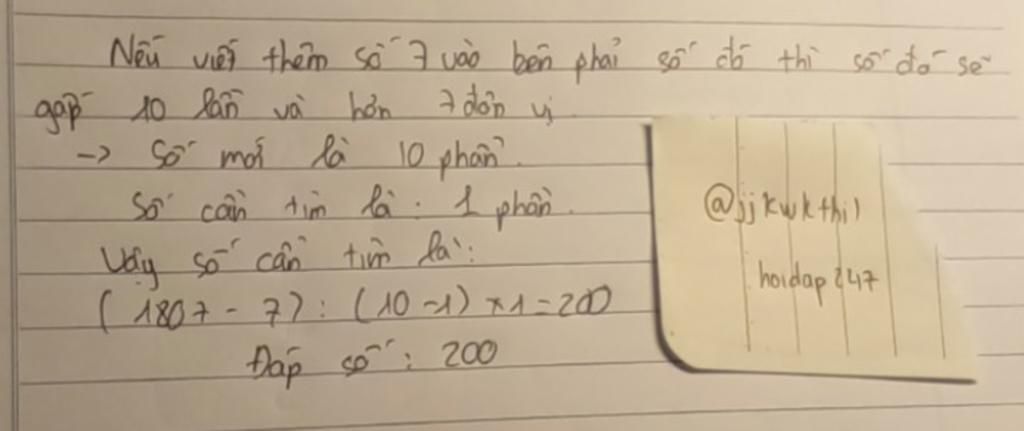 Nếu viết thêm số 7 vào bên phải số đó thì số đó sẽ
gấp 10 lần và hơn 7 đơn vị
-> Số mới là 10 phần.
Số cần tìm là : 1 phần.
Vậy số cần tìm là:
( 1807 - 7) : (10 -1) x1 = 200
Đáp số : 200
@jjkwkthil
hoidap247